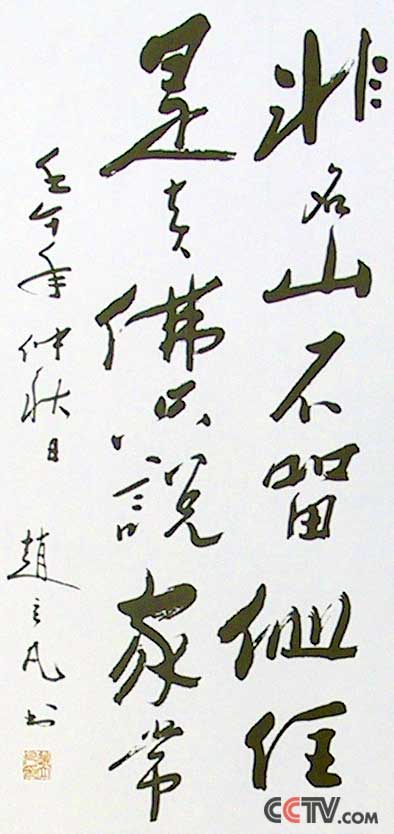 非名山不留仙住
是真佛只說家常
壬午年仲秋日 趙立凡書
CCTV.COM